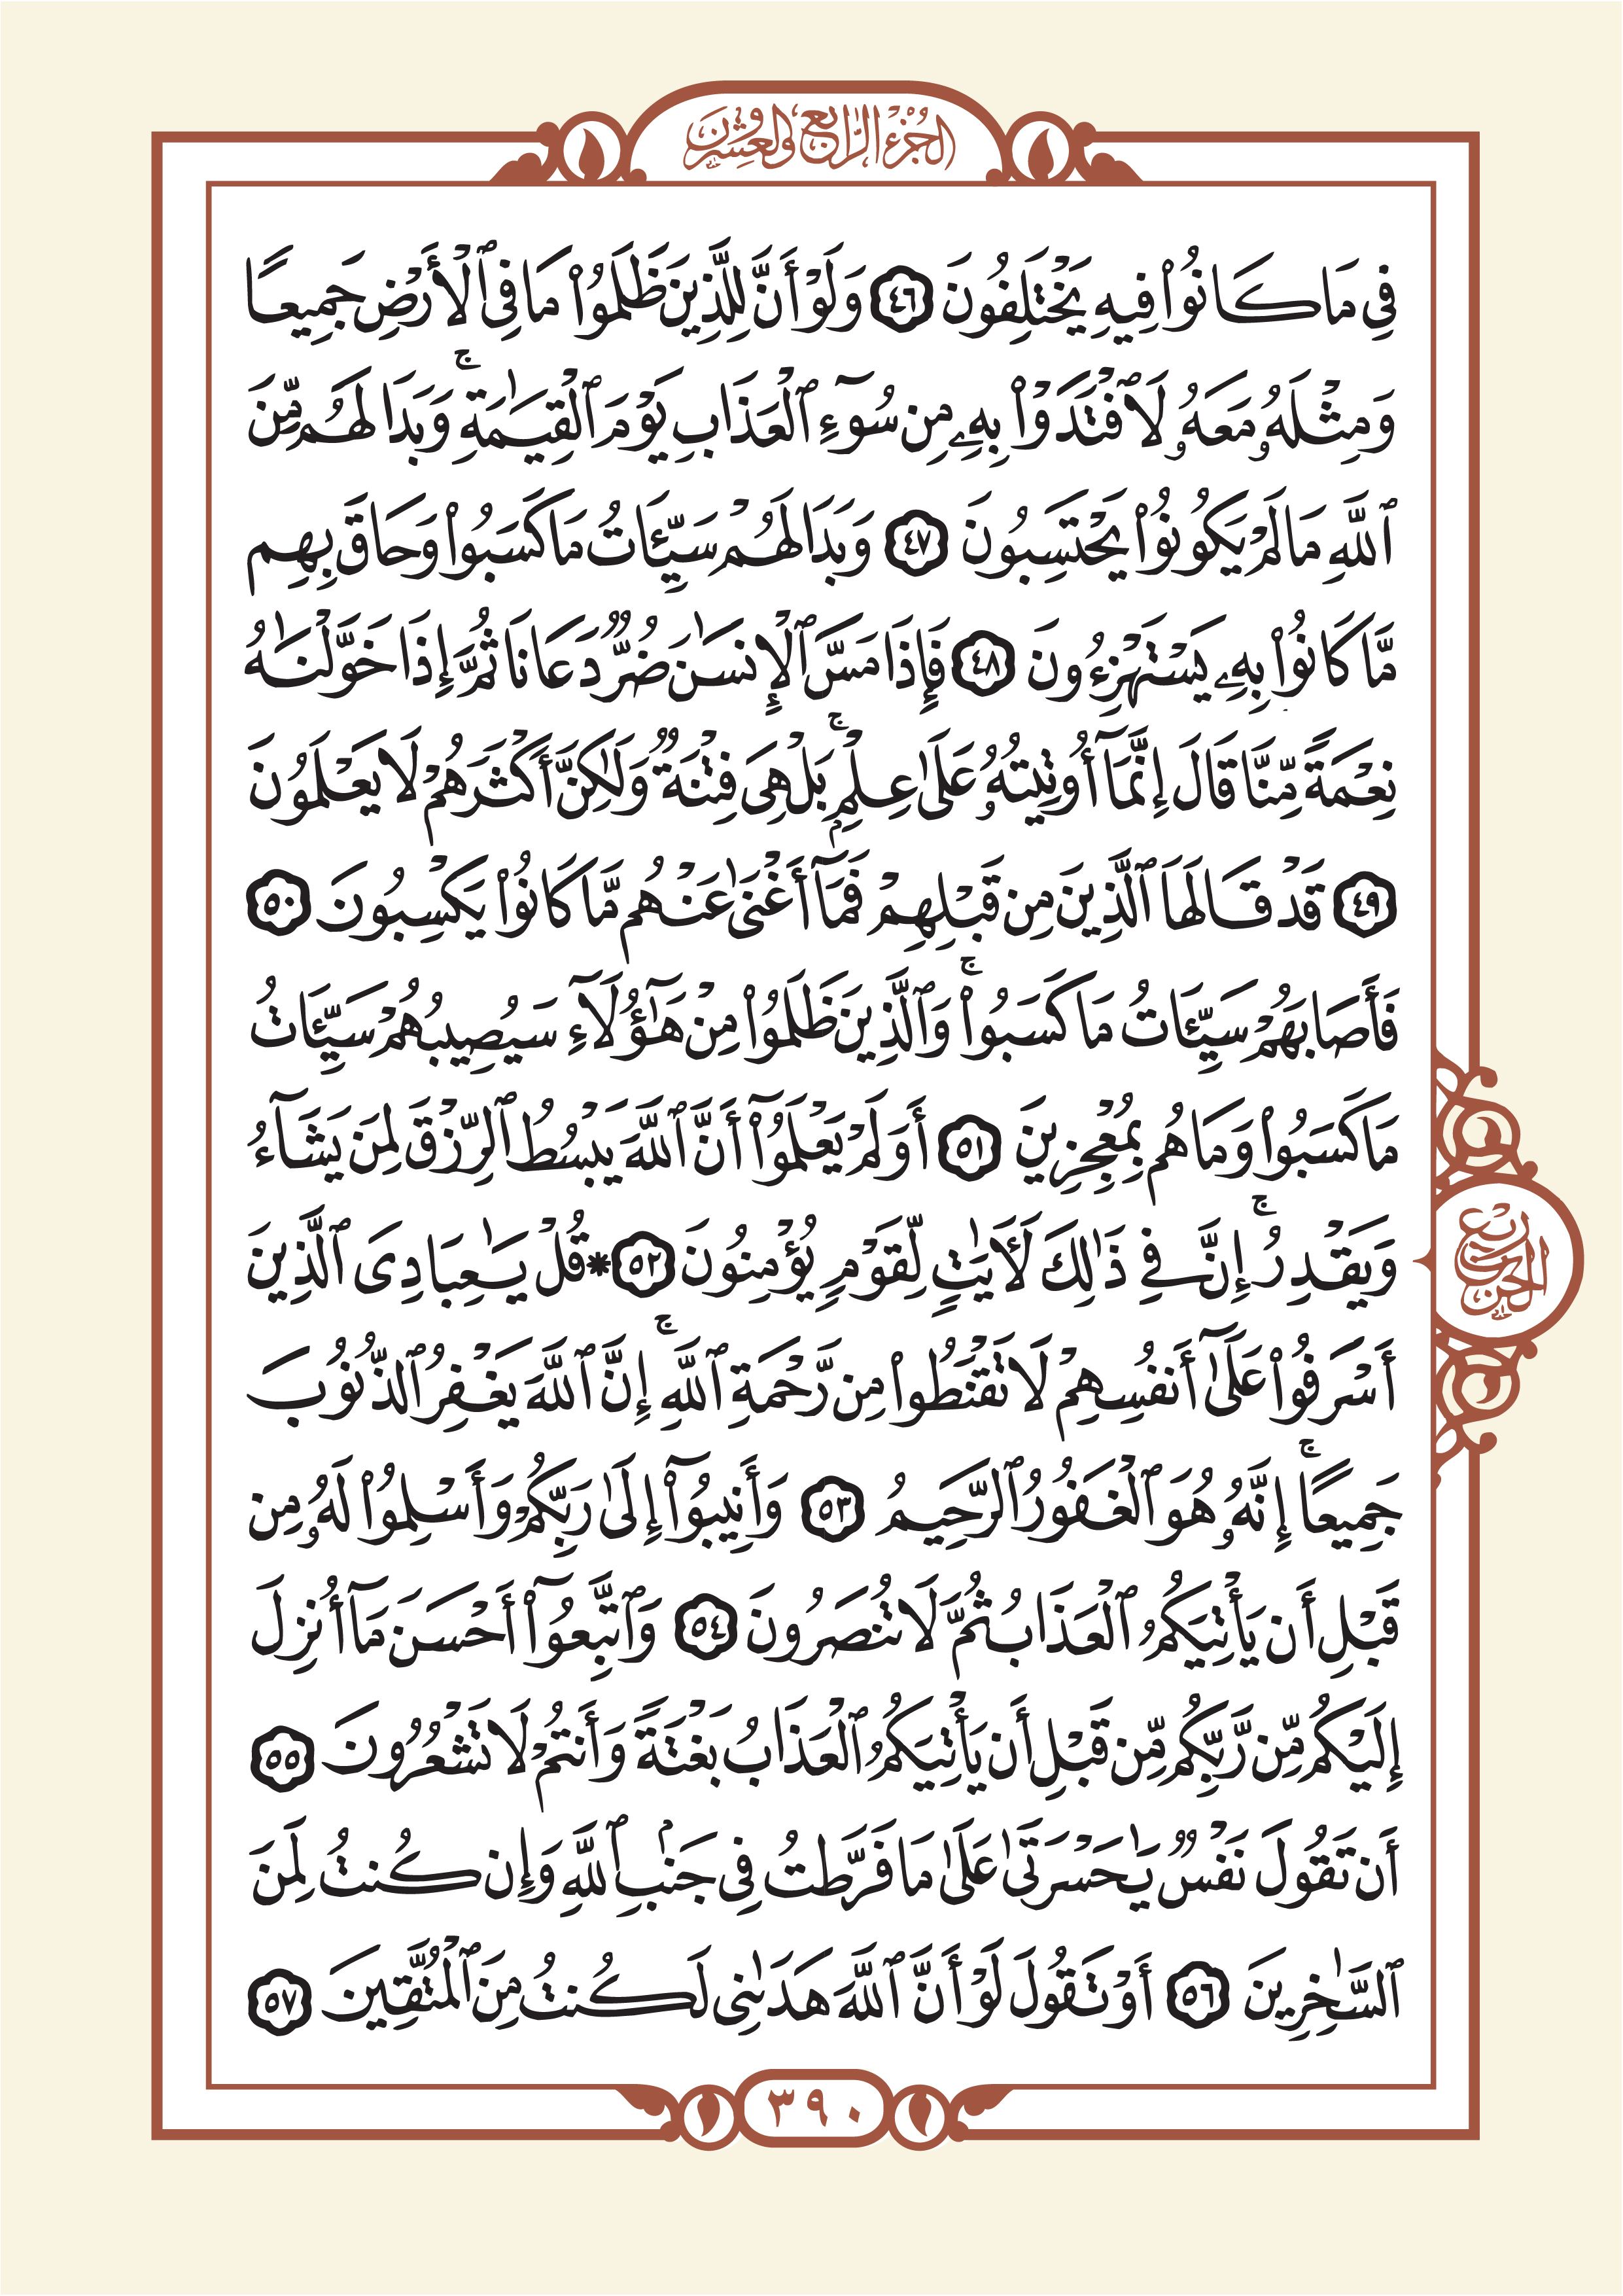 الجزء الرابع والعشرون
فِي مَا كَانُوا۟ فِيهِ يَخْتَلِفُونَ ٤٦ وَلَوْ أَنَّ لِلَّذِينَ ظَلَمُوا۟ مَا فِى ٱلْأَرْضِ جَمِيعًا
وَمِثْلَهُۥ مَعَهُۥ لَٱفْتَدَوْا۟ بِهِۦ مِن سُوٓءِ ٱلْعَذَابِ يَوْمَ ٱلْقِيَـٰمَةِ ۚ وَبَدَا لَهُم مِّنَ
ٱللَّهِ مَا لَمْ يَكُونُوا۟ يَحْتَسِبُونَ ٤٧ وَبَدَا لَهُمْ سَيِّـَٔاتُ مَا كَسَبُوا۟ وَحَاقَ بِهِم
مَّا كَانُوا۟ بِهِۦ يَسْتَهْزِءُونَ ٤٨ فَإِذَا مَسَّ ٱلْإِنسَـٰنَ ضُرٌّ دَعَانَا ثُمَّ إِذَا خَوَّلْنَـٰهُ
نِعْمَةً مِّنَّا قَالَ إِنَّمَآ أُوتِيتُهُۥ عَلَىٰ عِلْمٍۭ ۚ بَلْ هِىَ فِتْنَةٌ وَلَـٰكِنَّ أَكْثَرَهُمْ لَا يَعْلَمُونَ
٤٩ قَدْ قَالَهَا ٱلَّذِينَ مِن قَبْلِهِمْ فَمَآ أَغْنَىٰ عَنْهُم مَّا كَانُوا۟ يَكْسِبُونَ ٥٠
فَأَصَابَهُمْ سَيِّـَٔاتُ مَا كَسَبُوا۟ ۚ وَٱلَّذِينَ ظَلَمُوا۟ مِنْ هَـٰٓؤُلَآءِ سَيُصِيبُهُمْ سَيِّـَٔاتُ
مَا كَسَبُوا۟ وَمَا هُم بِمُعْجِزِينَ ٥١ أَوَلَمْ يَعْلَمُوٓا۟ أَنَّ ٱللَّهَ يَبْسُطُ ٱلرِّزْقَ لِمَن يَشَآءُ
وَيَقْدِرُ ۚ إِنَّ فِي ذَٰلِكَ لَـَٔايَـٰتٍ لِّقَوْمٍ يُؤْمِنُونَ ٥٢ * قُلْ يَـٰعِبَادِىَ ٱلَّذِينَ
أَسْرَفُوا۟ عَلَىٰٓ أَنفُسِهِمْ لَا تَقْنَطُوا۟ مِن رَّحْمَةِ ٱللَّهِ ۚ إِنَّ ٱللَّهَ يَغْفِرُ ٱلذُّنُوبَ
جَمِيعًا ۚ إِنَّهُۥ هُوَ ٱلْغَفُورُ ٱلرَّحِيمُ ٥٣ وَأَنِيبُوٓا۟ إِلَىٰ رَبِّكُمْ وَأَسْلِمُوا۟ لَهُۥ مِن
قَبْلِ أَن يَأْتِيَكُمُ ٱلْعَذَابُ ثُمَّ لَا تُنصَرُونَ ٥٤ وَٱتَّبِعُوٓا۟ أَحْسَنَ مَآ أُنزِلَ
إِلَيْكُم مِّن رَّبِّكُم مِّن قَبْلِ أَن يَأْتِيَكُمُ ٱلْعَذَابُ بَغْتَةً وَأَنتُمْ لَا تَشْعُرُونَ ٥٥
أَن تَقُولَ نَفْسٌ يَـٰحَسْرَتَىٰ عَلَىٰ مَا فَرَّطتُ فِى جَنۢبِ ٱللَّهِ وَإِن كُنتُ لَمِنَ
ٱلسَّـٰخِرِينَ ٥٦ أَوْ تَقُولَ لَوْ أَنَّ ٱللَّهَ هَدَىٰنِى لَكُنتُ مِنَ ٱلْمُتَّقِينَ ٥٧
ربع الحزب
٣٩٠